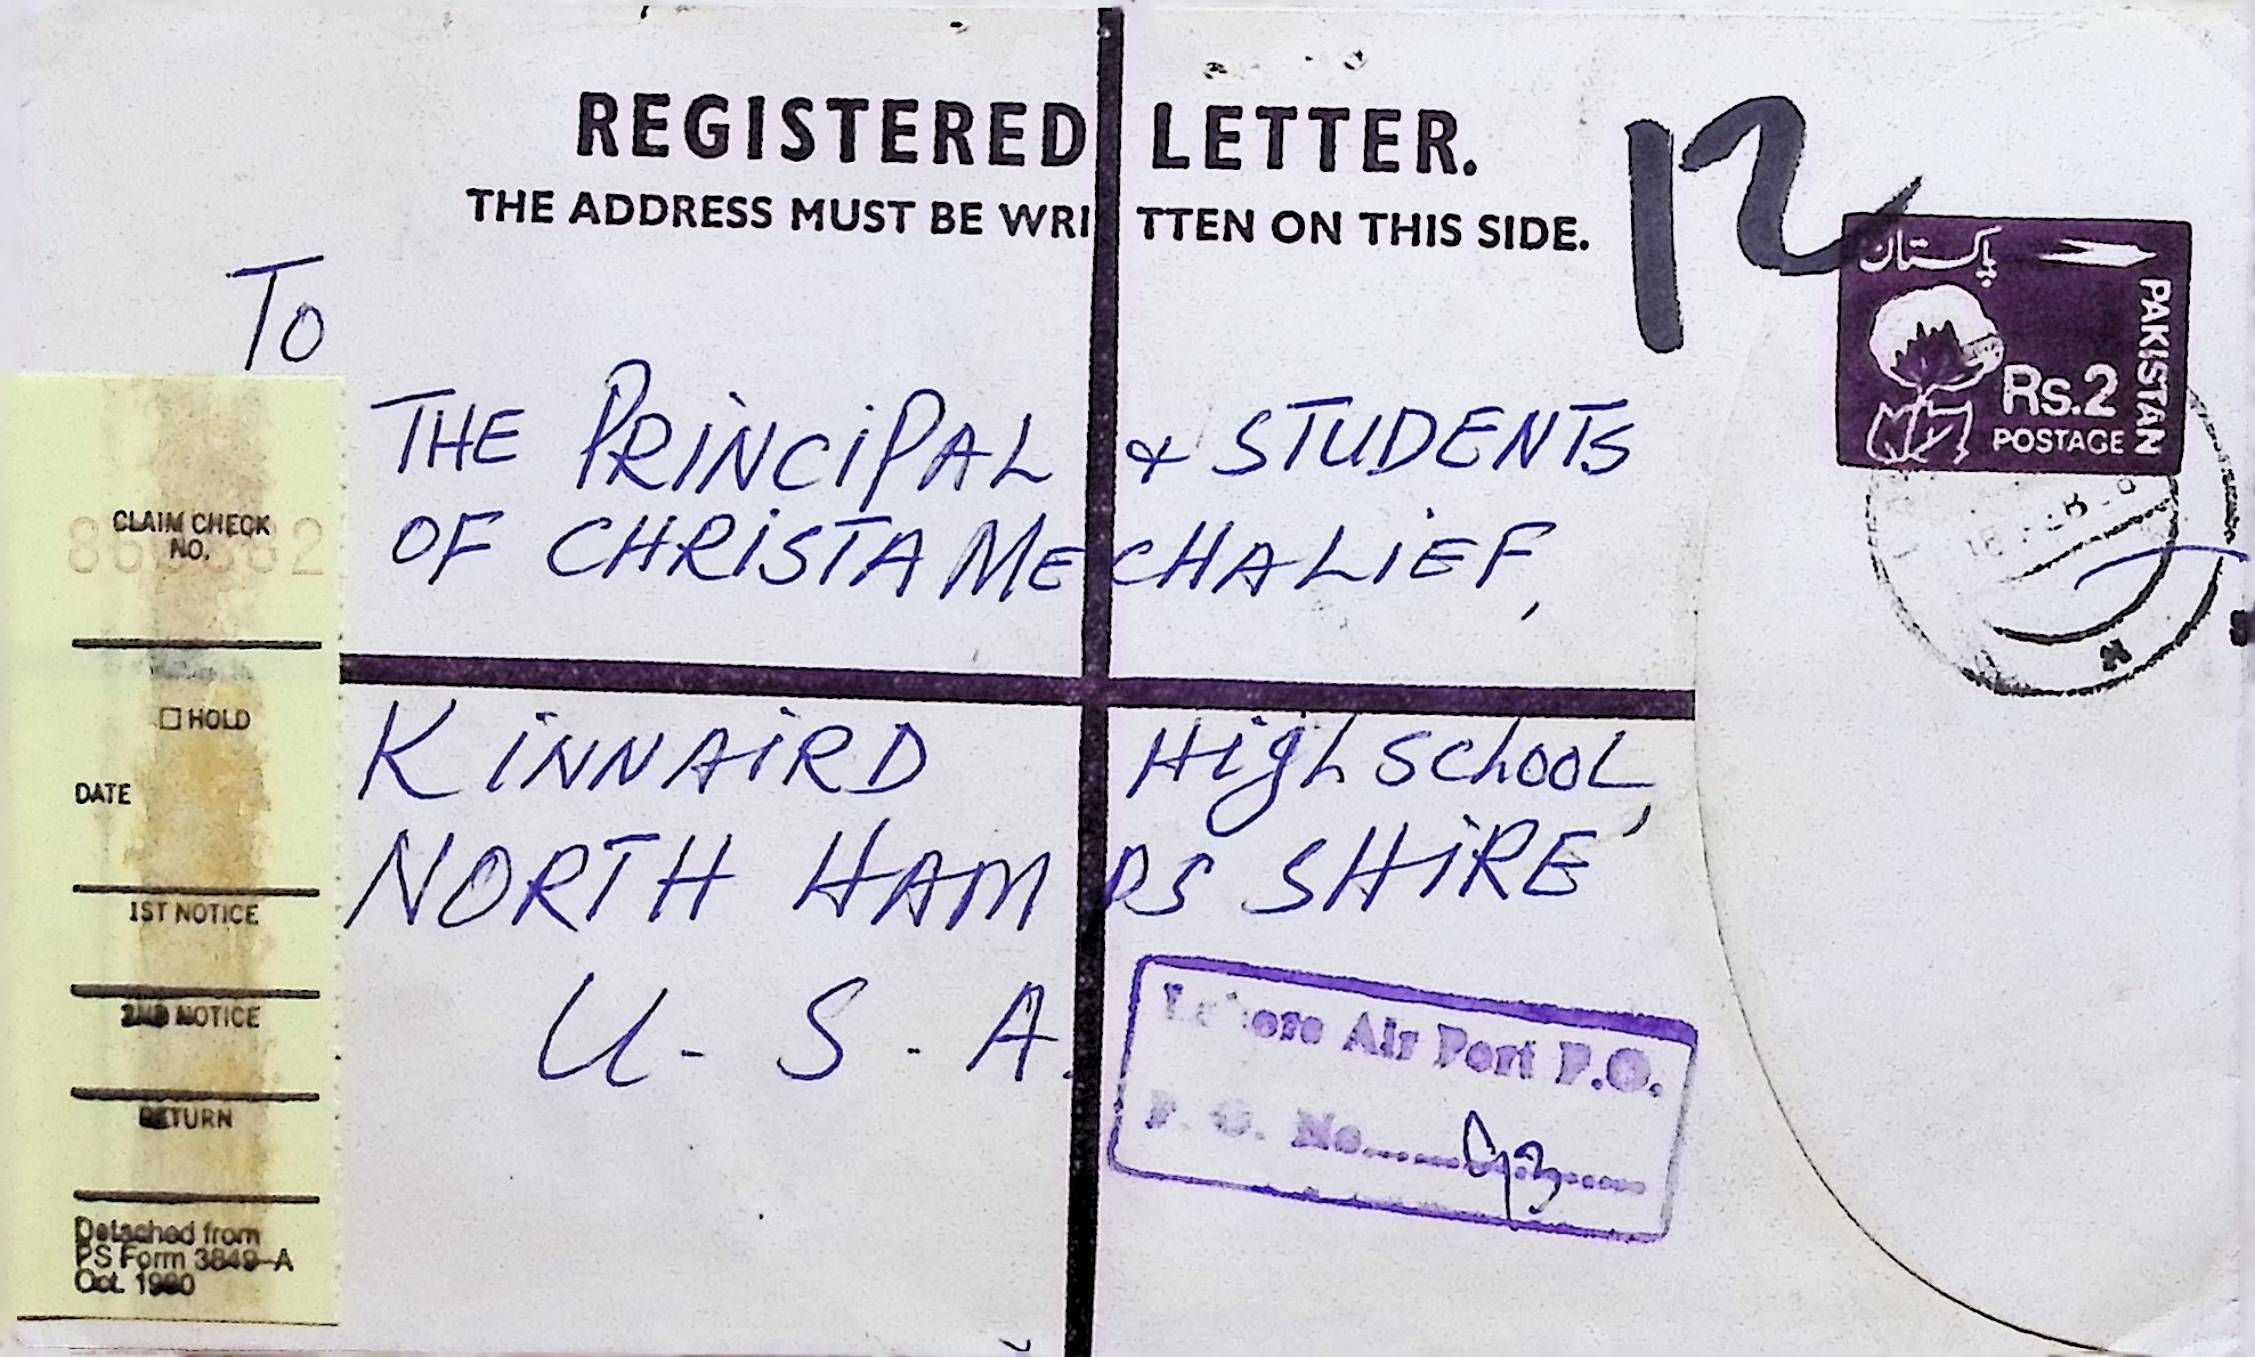 REGISTERED LETTER.
THE ADDRESS MUST BE WRITTEN ON THIS SIDE.
12
پاکستان
PAKISTAN
Rs.2
POSTAGE
To
THE PRINCIPAL & STUDENTS
OF CHRISTA MECHALIEF,
KINNAIRD HigH SchooL,
NORTH HAMPS SHIRE
U. S. A.
CLAIM CHECK
NO.
HOLD
DATE
1ST NOTICE
2ND NOTICE
RETURN
Detached from
PS Form 3849-A
Oct. 1980
Lahore Air Port P.O.
No.